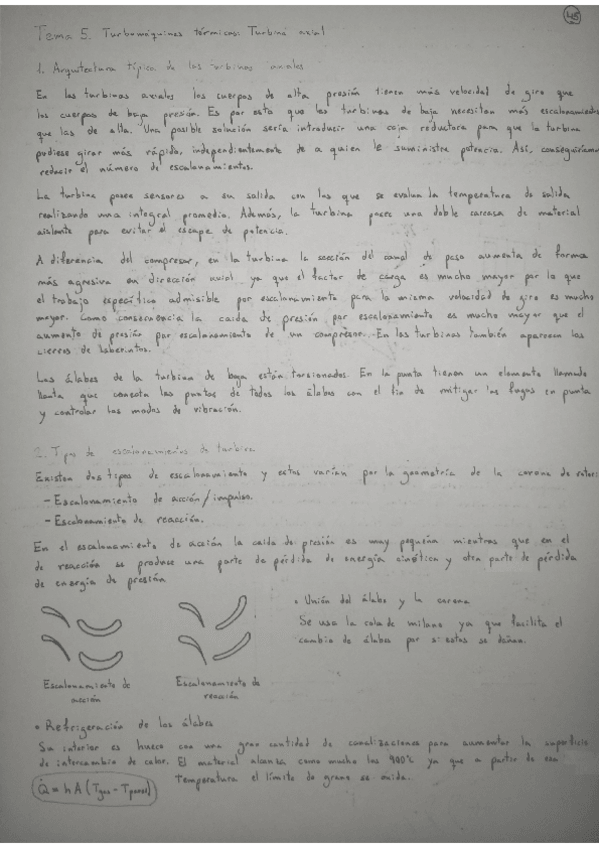 45
Tema 5. Turbomáquinas térmicas: Turbina axial
1. Arquitectura típica de las turbinas axiales
En las turbinas axiales los cuerpos de alta presión tienen más velocidad de giro que
los cuerpos de baja presión. Es por esto que las turbinas de baja necesitan más escalonamientos
que las de alta. Una posible solución sería introducir una caja reductora para que la turbina
pudiese girar más rápida, independientemente de a quien le suministre potencia. Así, conseguiríamos
reducir el número de escalonamientos.
La turbina posee sensores a su salida con los que se evalua la temperatura de salida
realizando una integral promedia. Además, la turbina posee una doble carcasa de material
aislante para evitar el escape de potencia.
A diferencia del compresor, en la turbina la sección del canal de paso aumenta de forma
más agresiva en dirección axial ya que el factor de carga es mucho mayor por lo que
el trabajo específico admisible por escalonamiento para la misma velocidad de giro es mucho
mayor. Como consecuencia la caída de presión por escalonamiento es mucho mayor que el
aumento de presión por escalonamiento de un compresor. En las turbinas también aparecen los
cierres de laberintos.
Los álabes de la turbina de baja están torsionados. En la punta tienen un elemento llamado
llanta que conecta las puntas de todos los álabes con el fin de mitigar las fugas en punta
y controlar los modos de vibración.
2. Tipo de escalonamientos de turbina
Existen dos tipos de escalonamiento y estos varían por la geometría de la corona de rotor:
- Escalonamiento de acción/impulso.
- Escalonamiento de reacción.
En el escalonamiento de acción la caída de presión es muy pequeña mientras que en el
de reacción se produce una parte de pérdida de energía cinética y otra parte de pérdida
de energía de presión
• Unión del álabe y la corona
Se usa la cola de milano ya que facilita el
cambio de álabes por si estos se dañan.
Escalonamiento de
acción
Escalonamiento de
reacción
• Refrigeración de los álabes
Su interior es hueco con una gran cantidad de canalizaciones para aumentar la superficie
de intercambio de calor. El material alcanza como mucho los 900°C ya que a partir de esa
temperatura el límite de grano se oxida.
Q̇ = hA (Tgas - Tpared)